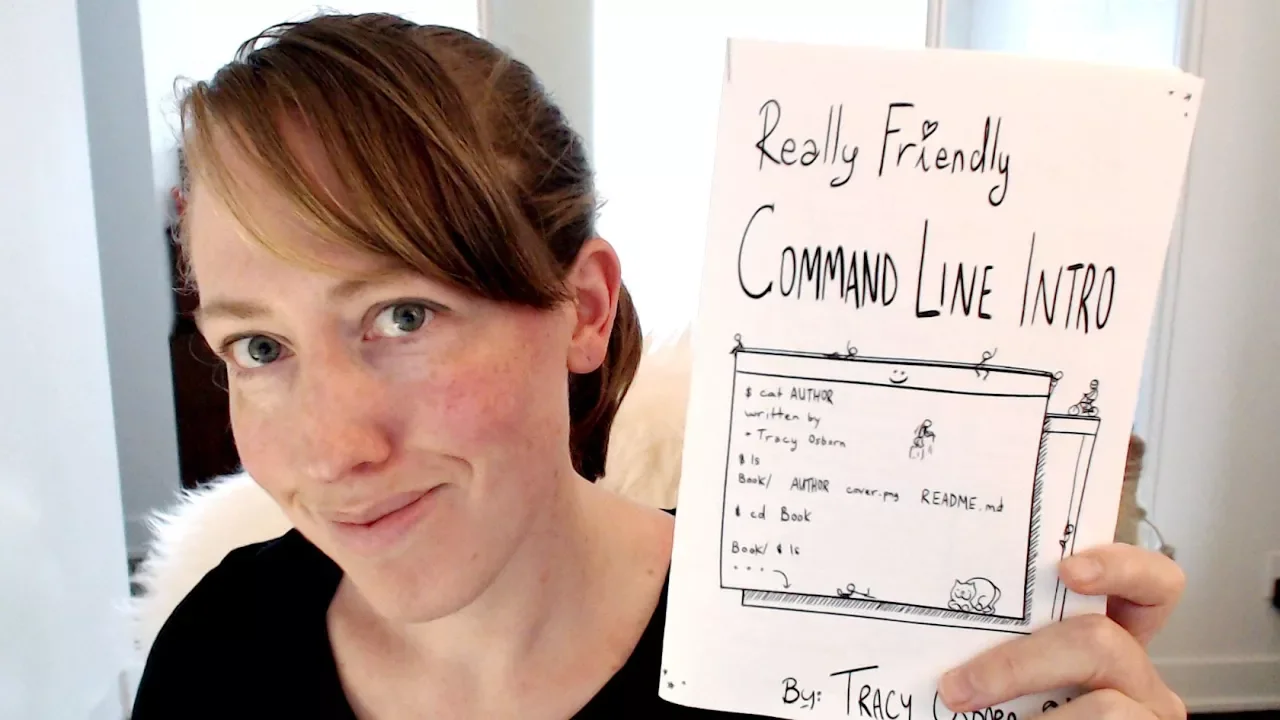 Really Friendly
COMMAND LINE INTRO
$ cat AUTHOR
written by
- Tracy Osborn
$ ls
Book/ AUTHOR cover.png README.md
$ cd Book
Book/ $ ls
...
By: TRACY